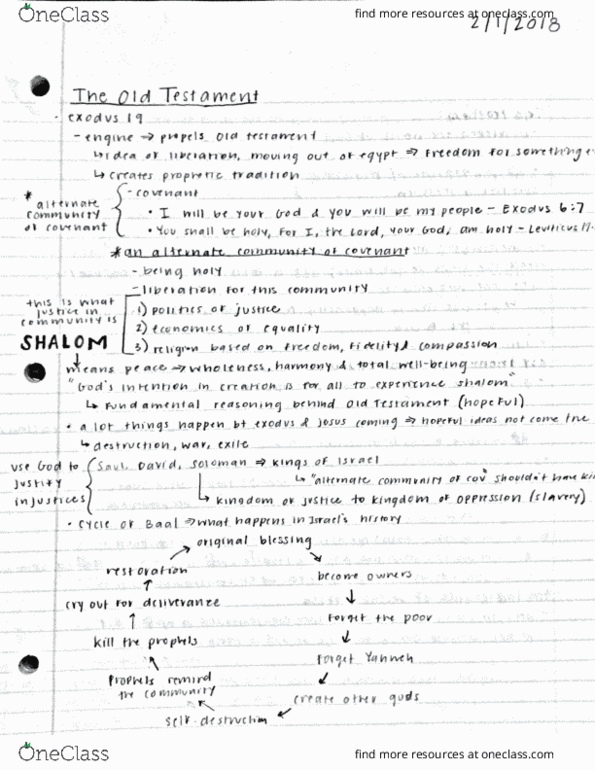 OneClass
find more resources at oneclass.com
2/1/2018
The Old Testament
• exodus 19
- engine ⇒ propels old testament
↳ idea of liberation, moving out of egypt ⇒ freedom for something e
↳ creates prophetic tradition
* alternate community of covenant
- covenant
• I will be your God & you will be my people - Exodus 6:7
• You shall be holy, for I, the Lord, your God, am holy - Leviticus
*an alternate community of covenant
- being holy
- liberation for this community
this is what justice in community is
1) politics of justice
2) economics of equality
3) religion based on freedom, fidelity & compassion
SHALOM
↓
means peace → wholeness, harmony & total well-being
"God's intention in creation is for all to experience shalom"
↳ fundamental reasoning behind Old Testament (hopeful)
• a lot things happen bt exodus & jesus coming ⇒ hopeful ideas not come true
↳ destruction, war, exile
use God to justify injustices
Saul, David, Soloman ⇒ kings of Israel
↳ "alternate community of cov" shouldn't have ki
↳ kingdom of justice to kingdom of oppression (slavery)
• cycle of Baal ⇒ what happens in Israel's history
original blessing
become owners
forget the poor
forget Yahweh
create other gods
self-destruction
prophets remind the community
kill the prophets
cry out for deliverance
restoration
OneClass
find more resources at oneclass.com